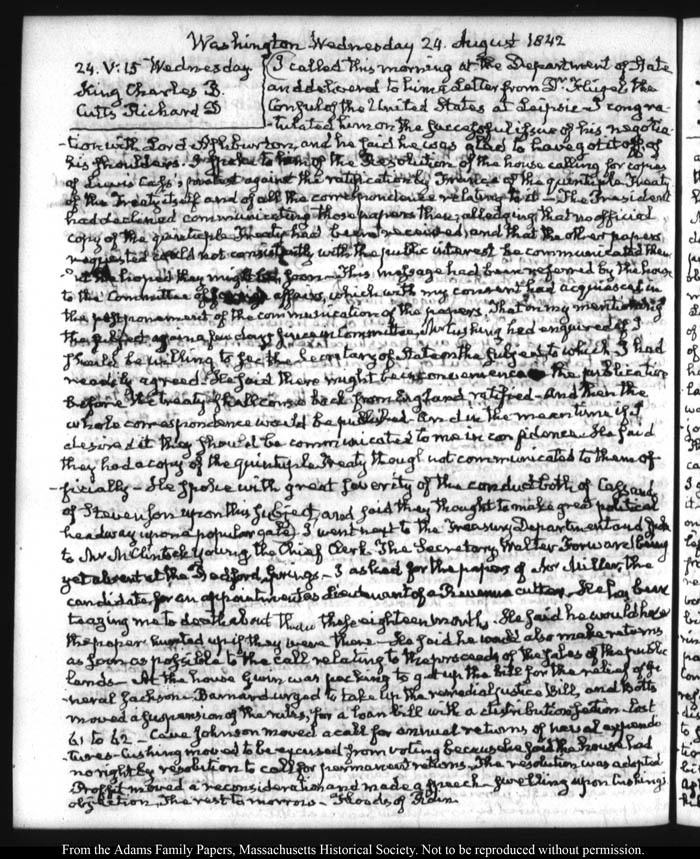 Washington Wednesday 24. August 1842
24. V:15 Wednesday
King Charles B.
Cutts Richard D
I called this morning at the Department of State
and delivered to him a Letter from Dr. Flügel, the
Consul of the United States at Leipsic - I congra-
-tulated him on the successful issue of his negotia-
-tion with Lord Ashburton, and he said he was glad to have got it off of
his shoulders. I spoke to him of the Resolution of the house calling for copies
of Lewis Cass's protest against the ratification by France of the quintuple Treaty
of the Treaty itself and of all the correspondence relating to it - The President
had declined communicating those papers then; alledging that no official
copy of the quintuple Treaty had been received, and that the other papers
requested could not consistently with the public interest be communicated then
but he hoped they might be, soon - This message had been referred by the house
to the Committee of foreign affairs, which with my consent had acquiesced in
the postponement of the communication of the papers, That on my mentioning
the subject again a few days since in Committee, Mr Cushing had enquired if I
should be willing to see the Secretary of State on the subject, to which I had
readily agreed. He said there might be inconvenience in the publication
before the treaty shall come back from England ratified - and then the
whole correspondence would be published - And in the mean time if I
desired it they should be communicated to me in confidence. He said
they had a copy of the quintuple Treaty though not communicated to them of-
-ficially - He spoke with great severity of the conduct both of Cass and
of Stevenson upon this subject, and said they thought to make great political
headway upon a popular gale. I went next to the Treasury Department and
to Mr McClintock Young the Chief Clerk The Secretary Walter Forward being
yet absent at the Bedford Springs - I asked for the papers of Mr Miller, the
candidate for an appointment as Lieutenant of a Revenue cutter. He has been
teazing me to death about these eighteen months. He said he would have
the papers hunted up if they were there - He said he would also make returns
as soon as possible to the call relating to the proceeds of the sales of the public
lands - At the house Gwin was pushing to get up the bill for the relief of Ge-
neral Jackson - Barnard urged to take up the remedial justice Bill, and Botts
moved a suspension of the rules, for a loan bill with a distribution section. Lost
61 to 62 - Cave Johnson moved a call for annual returns of naval expendi-
-tures Cushing moved to be excused from voting because he said the house had
no right by resolution to call for permanent returns. The resolution was adopted
Proffit moved a reconsideration and made a speech - dwelling upon Cushing's
objection, The rest tomorrow - Floods of Rain.
From the Adams Family Papers, Massachusetts Historical Society. Not to be reproduced without permission.